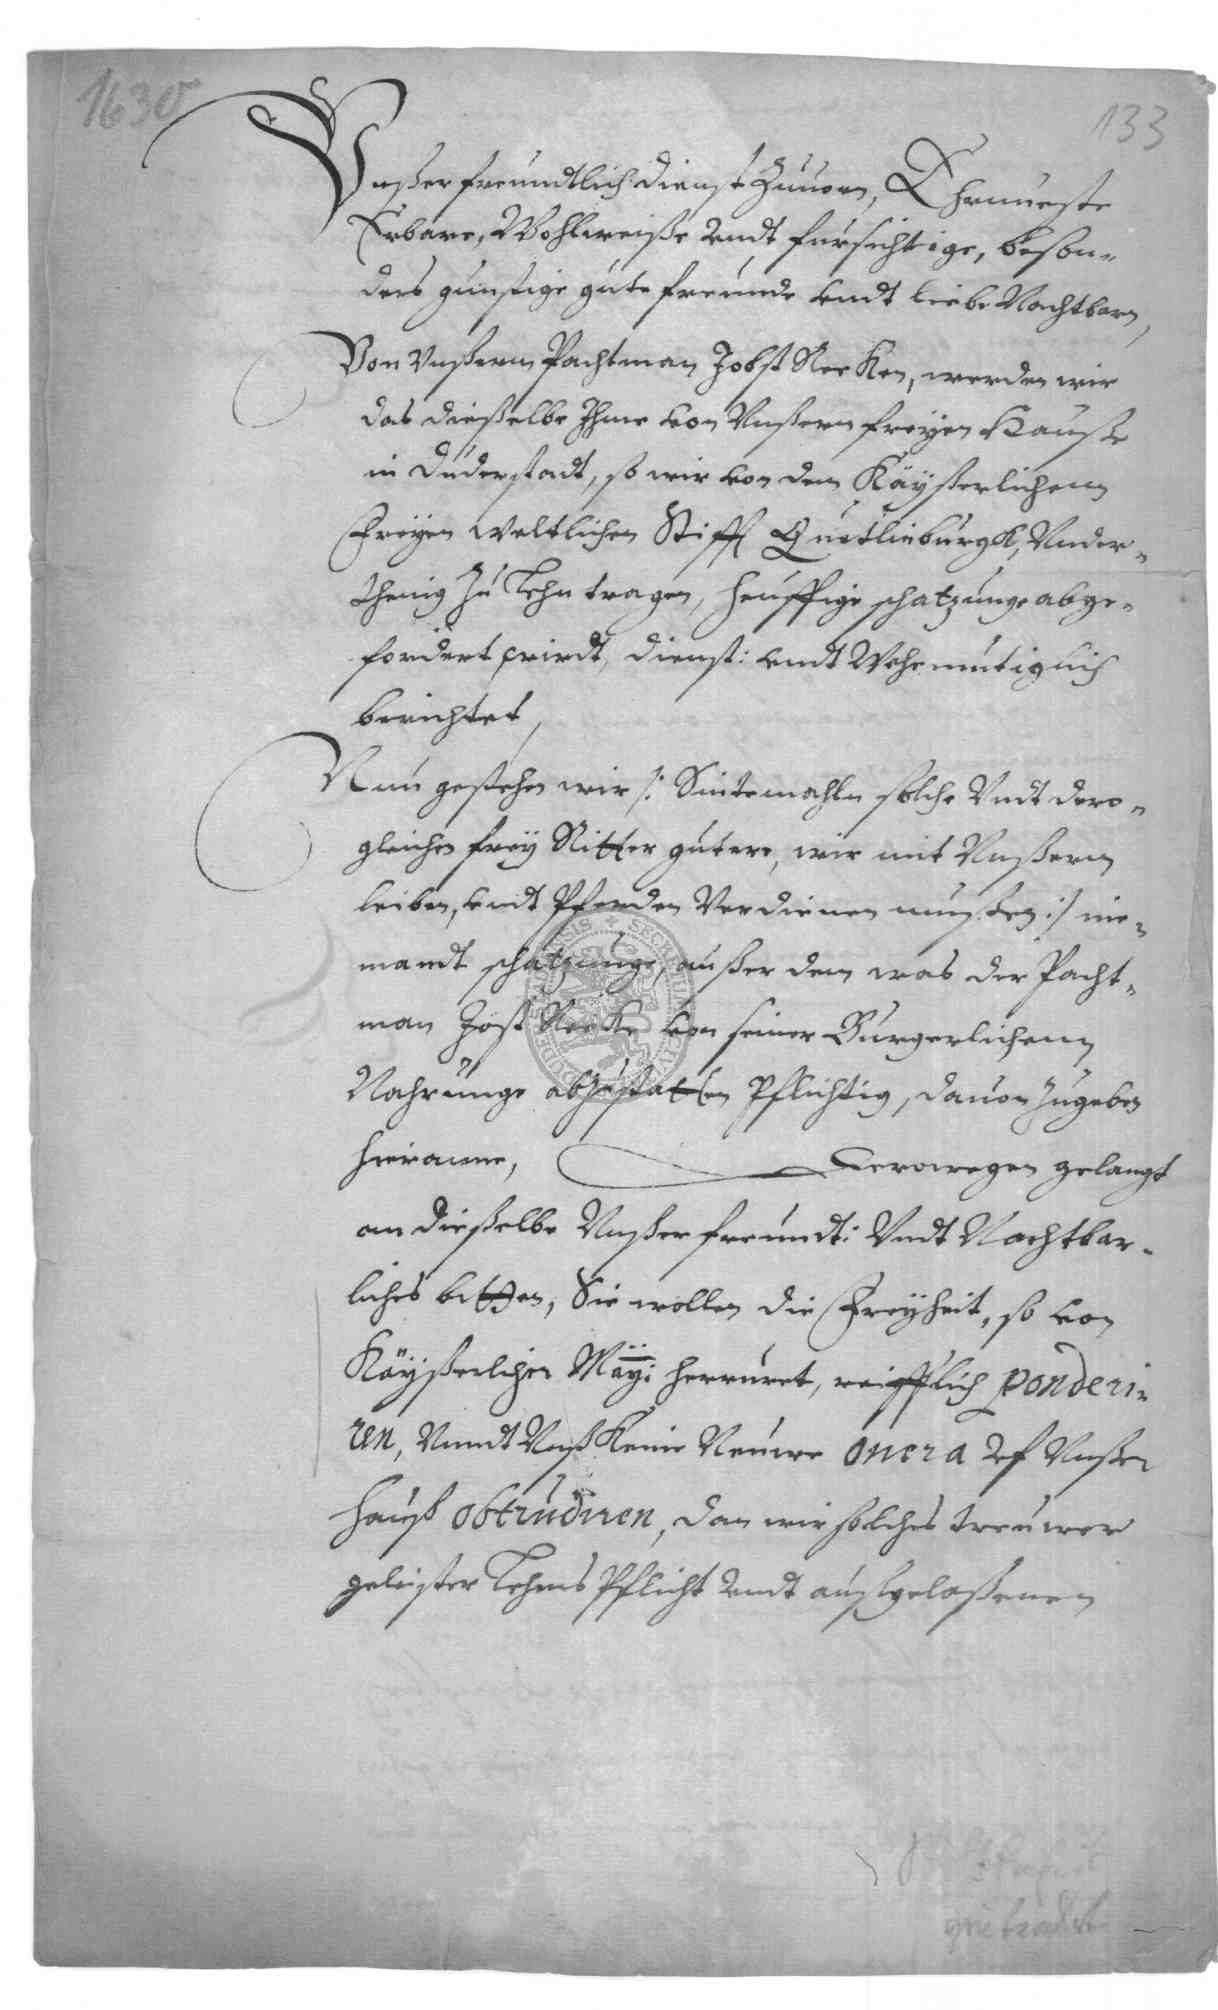 1630
133
Vnßer freundtlich dienst Zuuorn, Ehrnueste
Erbare, Wohlweiße vndt fursichtige, beson-
ders gunstige gute freunde vndt liebe Nachtbarn,
Von Vnßerm Pachtman Jobst Recken, werden wir
das dießelbe Ihme von Vnßerm freyen Hauße
in Duderstadt, so wir von dem Käyßerlichenn
Freyen weltlichen Stifft Quetlinburgk, Vnder-
thenig Zu Lehn tragen, heuffige schatzunge abge-
fordert wirdt, dienst: vndt Wehemutiglich
berichtet,
Nun gestehen wir /: Sintemahln solche Vndt dero-
gleichen frey Ritter gutere, wir mit Vnßerm
leiben, vndt Pferden Verdienen mußen :/ nie-
mandt schatzunge, außer dem was der Pacht-
man Jost Recke von seiner Burgerlichenn
Nahrunge abzustatten Pflichtig, dauon zugeben
hieranne, Derowegen gelangt
an dießelbe Vnßer freundt: Vndt Nachtbar-
liches bitten, Sie wollen die Freyheit, so von
Käyßerlicher Mayt: herruret, reifflich ponderi-
ren, Vnndt Vnß Keine Neuwe onera vf Vnßer
Hauß obtrudiren, dan wir solches treuwer
geleister Lehns Pflicht vndt außgelaßenen